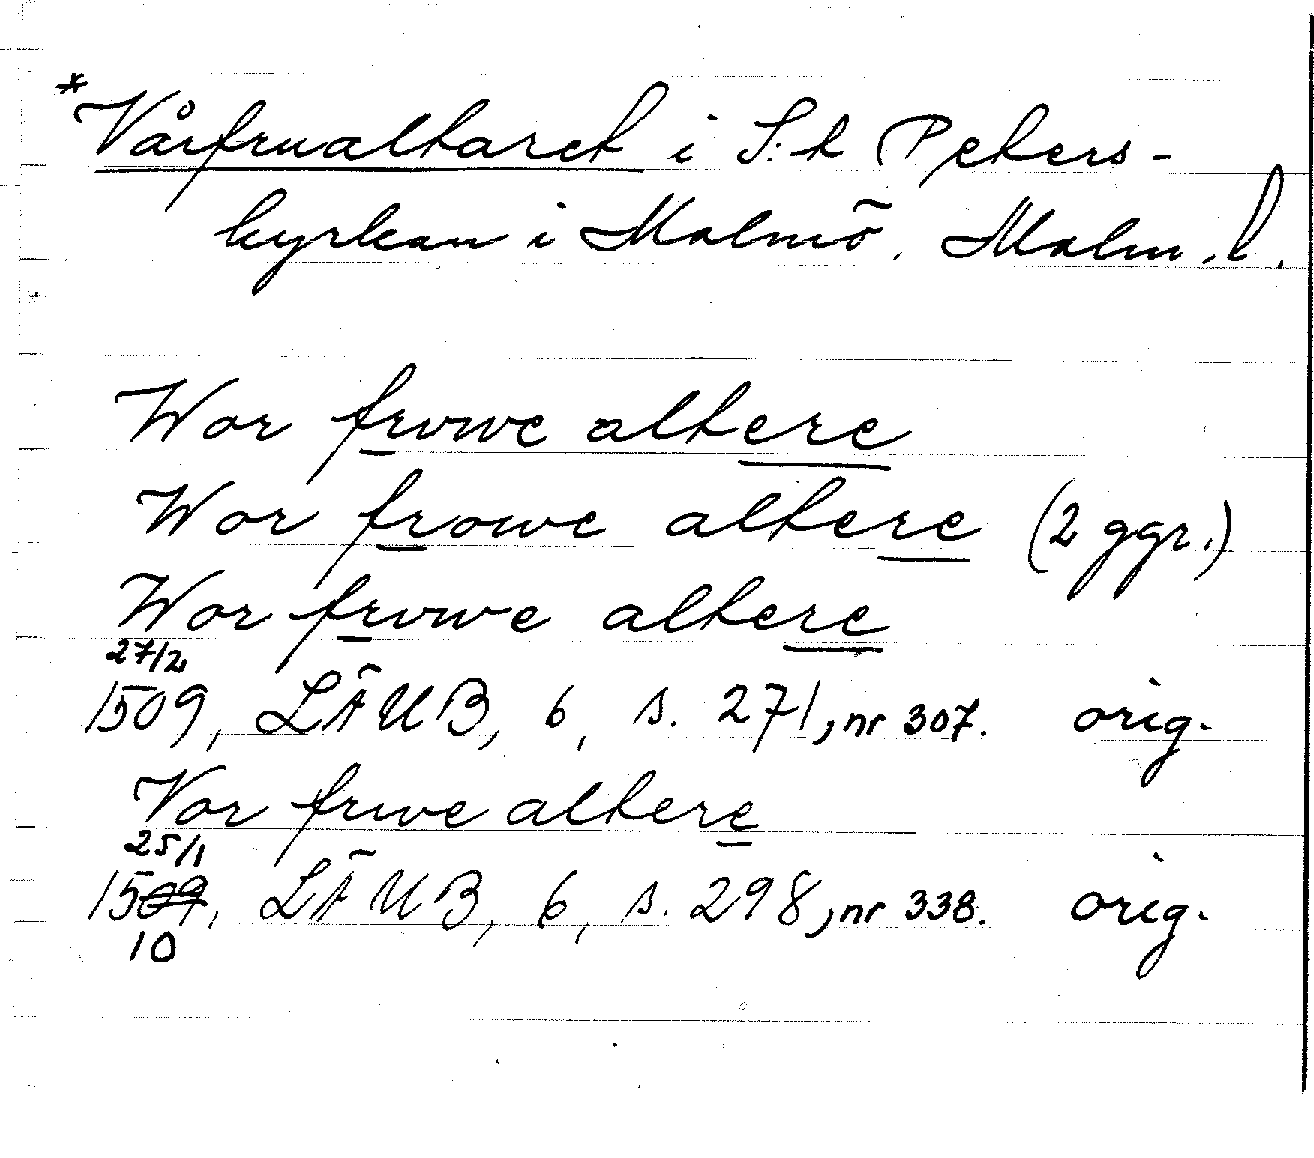 *Vårfrualtaret i S:t Peters-
kyrkan i Malmö. Malm. l.
Wor frvwe altere
Wor frowe altere (2 ggr.)
Wor frvwe altere
27/2
1509, LÄUB, 6, s. 271, nr 307. orig.
Vor frwe altere
25/1
1509, LÄUB, 6, s. 298, nr 338. orig.
10